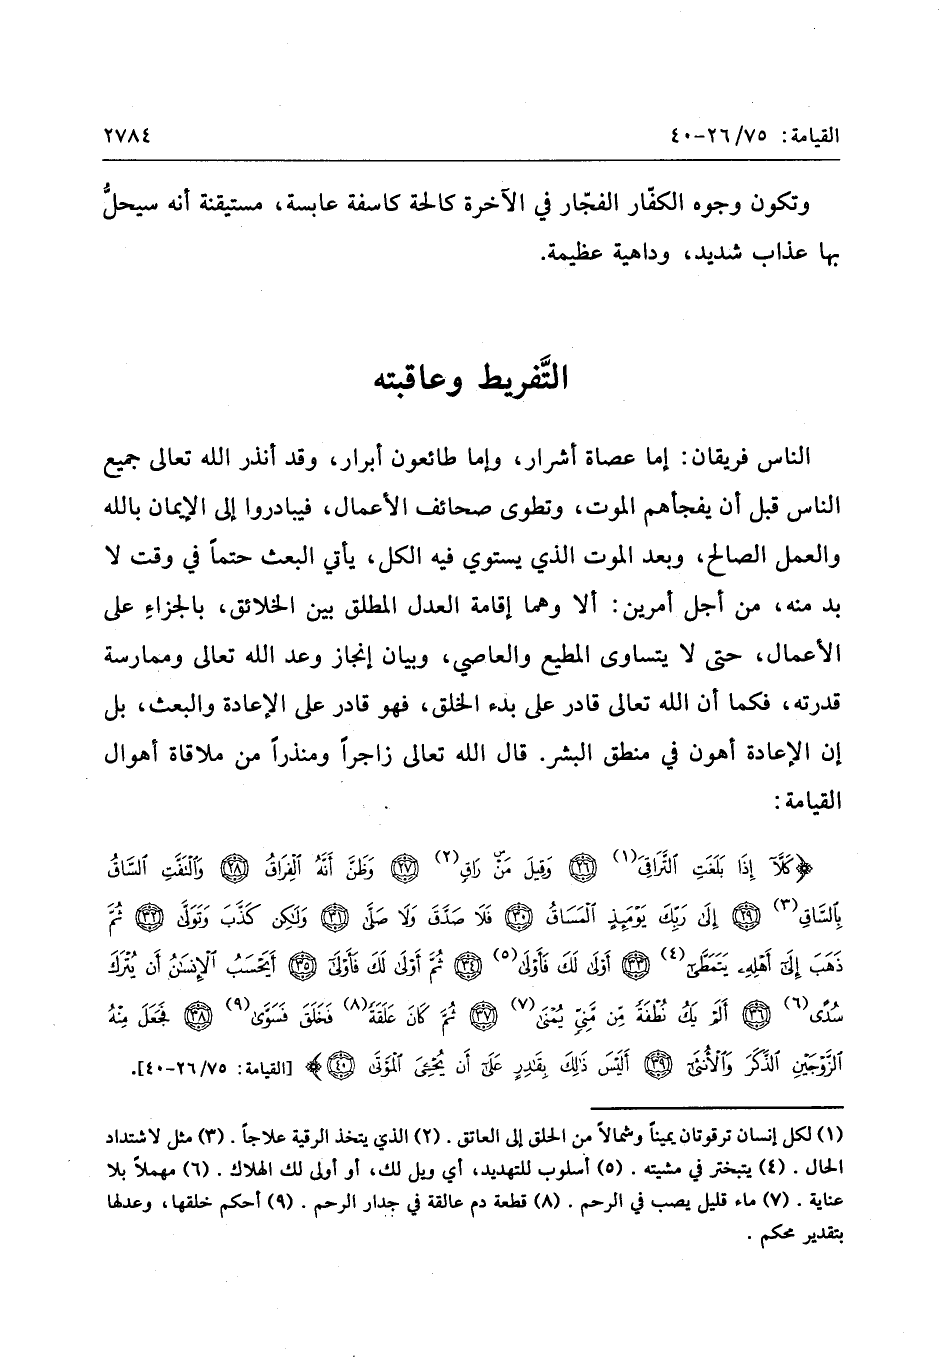 القيامة: ٧٥/ ٢٦-٤٠ ٢٧٨٤
وتكون وجوه الكفّار الفجّار في الآخرة كالحة كاسفة عابسة، مستيقنة أنه سيحلُّ
بها عذاب شديد، وداهية عظيمة.
التَّفريط وعاقبته
الناس فريقان: إما عصاة أشرار، وإما طائعون أبرار، وقد أنذر الله تعالى جميع
الناس قبل أن يفجأهم الموت، وتطوى صحائف الأعمال، فيبادروا إلى الإيمان بالله
والعمل الصالح، وبعد الموت الذي يستوي فيه الكل، يأتي البعث حتماً في وقت لا
بد منه، من أجل أمرين: ألا وهما إقامة العدل المطلق بين الخلائق، بالجزاءِ على
الأعمال، حتى لا يتساوى المطيع والعاصي، وبيان إنجاز وعد الله تعالى وممارسة
قدرته، فكما أن الله تعالى قادر على بدء الخلق، فهو قادر على الإعادة والبعث، بل
إن الإعادة أهون في منطق البشر. قال الله تعالى زاجراً ومنذراً من ملاقاة أهوال
القيامة:
﴿كَلَّآ إِذَا بَلَغَتِ ٱلتَّرَاقِيَ(١) ٢٦ وَقِيلَ مَنْۜ رَاقٍ(٢) ٢٧ وَظَنَّ أَنَّهُ ٱلْفِرَاقُ ٢٨ وَٱلْتَفَّتِ ٱلسَّاقُ
بِٱلسَّاقِ(٣) ٢٩ إِلَىٰ رَبِّكَ يَوْمَئِذٍ ٱلْمَسَاقُ ٣٠ فَلَا صَدَّقَ وَلَا صَلَّىٰ ٣١ وَلَٰكِن كَذَّبَ وَتَوَلَّىٰ ٣٢ ثُمَّ
ذَهَبَ إِلَىٰٓ أَهْلِهِۦ يَتَمَطَّىٰٓ(٤) ٣٣ أَوْلَىٰ لَكَ فَأَوْلَىٰ(٥) ٣٤ ثُمَّ أَوْلَىٰ لَكَ فَأَوْلَىٰٓ ٣٥ أَيَحْسَبُ ٱلْإِنسَٰنُ أَن يُتْرَكَ
سُدًى(٦) ٣٦ أَلَمْ يَكُ نُطْفَةً مِّن مَّنِىٍّ يُمْنَىٰ(٧) ٣٧ ثُمَّ كَانَ عَلَقَةً(٨) فَخَلَقَ فَسَوَّىٰ(٩) ٣٨ فَجَعَلَ مِنْهُ
ٱلزَّوْجَيْنِ ٱلذَّكَرَ وَٱلْأُنثَىٰٓ ٣٩ أَلَيْسَ ذَٰلِكَ بِقَٰدِرٍ عَلَىٰٓ أَن يُحْـِۧىَ ٱلْمَوْتَىٰ ٤٠﴾ [القيامة: ٧٥/ ٢٦-٤٠].
(١) لكل إنسان ترقوتان يميناً وشمالاً من الحلق إلى العاتق . (٢) الذي يتخذ الرقية علاجاً . (٣) مثل لاشتداد
الحال . (٤) يتبختر في مشيته . (٥) أسلوب للتهديد، أي ويل لك، أو أولى لك الهلاك . (٦) مهملاً بلا
عناية . (٧) ماء قليل يصب في الرحم . (٨) قطعة دم عالقة في جدار الرحم . (٩) أحكم خلقها، وعدلها
بتقدير محكم .